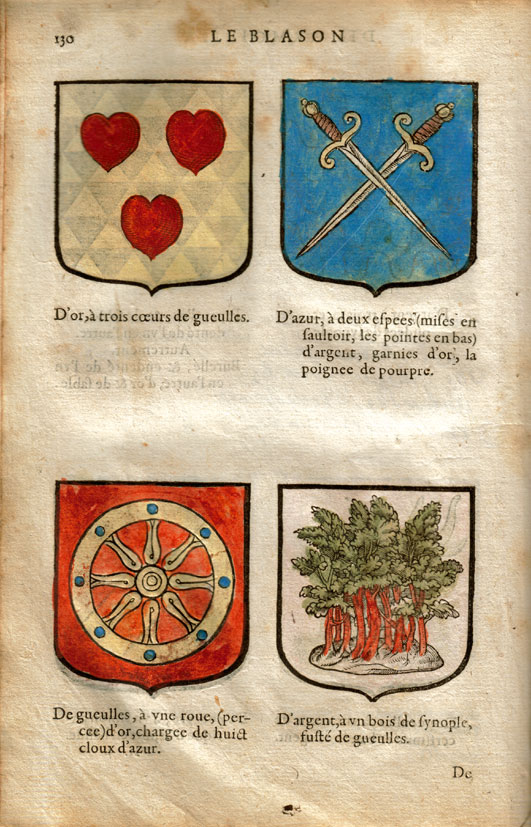 130
LE BLASON
D'or, à trois cœurs de gueulles.
D'azur, à deux espees (mises en
saultoir, les pointes en bas)
d'argent, garnies d'or, la
poignee de pourpre.
De gueulles, à vne roue, (per-
cee) d'or, chargee de huict
cloux d'azur.
D'argent, à vn bois de synople,
fusté de gueulles.
De